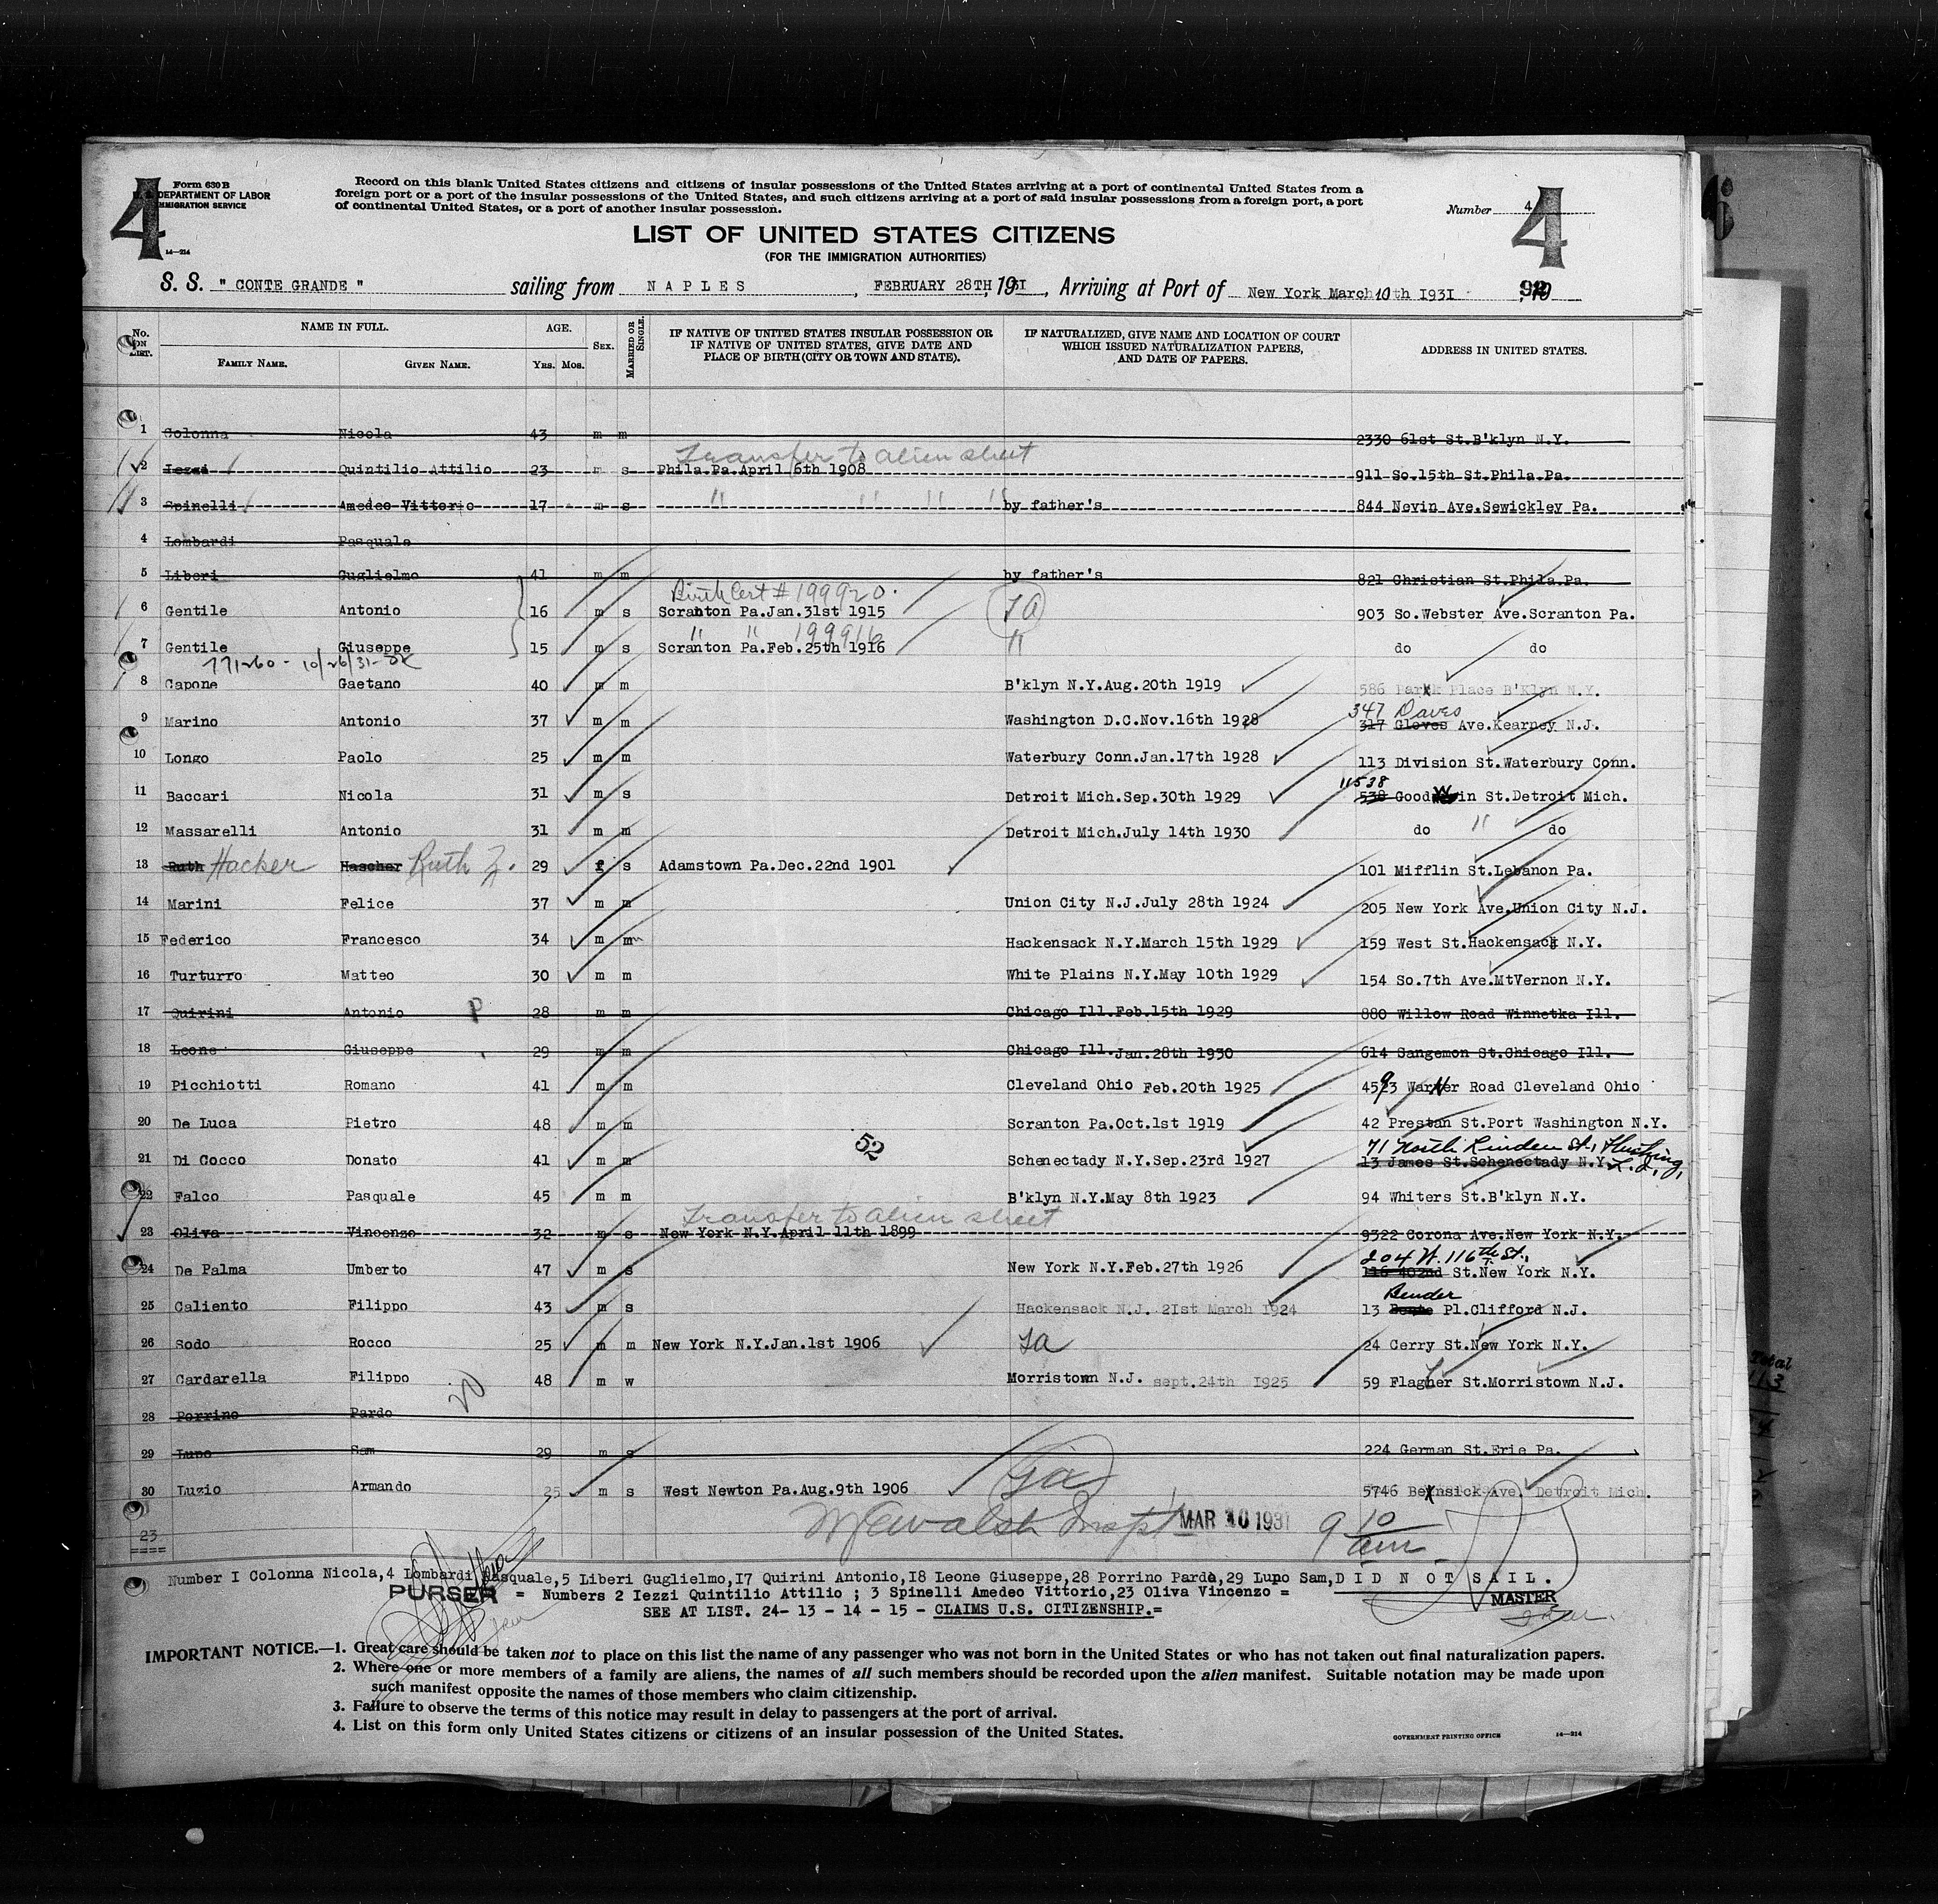 4
Form 630 B
DEPARTMENT OF LABOR
IMMIGRATION SERVICE
14—214
Record on this blank United States citizens and citizens of insular possessions of the United States arriving at a port of continental United States from a
foreign port or a port of the insular possessions of the United States, and such citizens arriving at a port of said insular possessions from a foreign port, a port
of continental United States, or a port of another insular possession.
Number 4
4
LIST OF UNITED STATES CITIZENS
(FOR THE IMMIGRATION AUTHORITIES)
S. S. " CONTE GRANDE " sailing from NAPLES, FEBRUARY 28TH, 1931, Arriving at Port of New York March 10th 1931
No. ON LIST. NAME IN FULL. AGE. SEX. MARRIED OR SINGLE. IF NATIVE OF UNITED STATES INSULAR POSSESSION OR IF NATIVE OF UNITED STATES, GIVE DATE AND PLACE OF BIRTH (CITY OR TOWN AND STATE). IF NATURALIZED, GIVE NAME AND LOCATION OF COURT WHICH ISSUED NATURALIZATION PAPERS, AND DATE OF PAPERS. ADDRESS IN UNITED STATES.
FAMILY NAME. GIVEN NAME. YRS. MOS.
1 Colonna Nicola 43 m m 2330 61st St.B'klyn N.Y.
Transfer to alien sheet
2 Iezzi Quintilio Attilio 23 m s Phila.Pa.April 6th 1908 911 So.15th St.Phila.Pa.
3 Spinelli Amedeo Vittorio 17 m s " " " " by father's 844 Nevin Ave.Sewickley Pa.
4 Lombardi Pasquale
5 Liberi Guglielmo 41 m m by father's 821 Christian St.Phila.Pa.
Birth Cert # 199920.
6 Gentile Antonio 16 m s Scranton Pa.Jan.31st 1915 903 So.Webster Ave.Scranton Pa.
" " 199916
7 Gentile Giuseppe 15 m s Scranton Pa.Feb.25th 1916 " do do
771260 - 10/26/31
8 Capone Gaetano 40 m m B'klyn N.Y.Aug.20th 1919 586 Park Place B'Klyn N.Y.
347 Daves
9 Marino Antonio 37 m m Washington D.C.Nov.16th 1928 317 Gloves Ave.Kearney N.J.
10 Longo Paolo 25 m m Waterbury Conn.Jan.17th 1928 113 Division St.Waterbury Conn.
11538
11 Baccari Nicola 31 m s Detroit Mich.Sep.30th 1929 538 Goodwin St.Detroit Mich.
12 Massarelli Antonio 31 m m Detroit Mich.July 14th 1930 do " do
13 Ruth Hacker Hascher Ruth Z. 29 f s Adamstown Pa.Dec.22nd 1901 101 Mifflin St.Lebanon Pa.
14 Marini Felice 37 m m Union City N.J.July 28th 1924 205 New York Ave.Union City N.J.
15 Federico Francesco 34 m m Hackensack N.Y.March 15th 1929 159 West St.Hackensack N.Y.
16 Turturro Matteo 30 m m White Plains N.Y.May 10th 1929 154 So.7th Ave.MtVernon N.Y.
17 Quirini Antonio P 28 m m Chicago Ill.Feb.15th 1929 880 Willow Road Winnetka Ill.
18 Leone Giuseppe 29 m m Chicago Ill.Jan.28th 1930 614 Sangemon St.Chicago Ill.
19 Picchiotti Romano 41 m m Cleveland Ohio Feb.20th 1925 4593 Warner Road Cleveland Ohio
20 De Luca Pietro 48 m m Scranton Pa.Oct.1st 1919 42 Prestan St.Port Washington N.Y.
52
71 North Linden St., Flushing, L.I.,
21 Di Cocco Donato 41 m m Schenectady N.Y.Sep.23rd 1927 13 James St.Schenectady N.Y.
22 Falco Pasquale 45 m m B'klyn N.Y.May 8th 1923 94 Whiters St.B'klyn N.Y.
Transfer to alien sheet
23 Oliva Vincenzo 32 m s New York N.Y.April 11th 1899 9322 Corona Ave.New York N.Y.
204 W. 116th St.,
24 De Palma Umberto 47 m s New York N.Y.Feb.27th 1926 116 402nd St.New York N.Y.
Bender
25 Caliento Filippo 43 m s Hackensack N.J. 21st March 1924 13 Pl.Clifford N.J.
26 Sodo Rocco 25 m m New York N.Y.Jan.1st 1906 24 Cerry St.New York N.Y.
27 Cardarella Filippo 48 m w Morristown N.J. sept.24th 1925 59 Flagher St.Morristown N.J.
20
28 Porrino Pardo
29 Lupo Sam 29 m s 224 German St.Erie Pa.
30 Luzio Armando 25 m s West Newton Pa.Aug.9th 1906 5746 Bernsick Ave. Detroit Mich.
Walsh Inspt MAR 10 1931 9 10 am
23
====
Number I Colonna Nicola,4 Lombardi Pasquale,5 Liberi Guglielmo,I7 Quirini Antonio,I8 Leone Giuseppe,28 Porrino Pardo,29 Lupo Sam,DID NOT SAIL.
PURSER = Numbers 2 Iezzi Quintilio Attilio ; 3 Spinelli Amedeo Vittorio,23 Oliva Vincenzo = MASTER
SEE AT LIST. 24- 13 - 14 - 15 - CLAIMS U.S. CITIZENSHIP.=
IMPORTANT NOTICE.—1. Great care should be taken not to place on this list the name of any passenger who was not born in the United States or who has not taken out final naturalization papers.
2. Where one or more members of a family are aliens, the names of all such members should be recorded upon the alien manifest. Suitable notation may be made upon
such manifest opposite the names of those members who claim citizenship.
3. Failure to observe the terms of this notice may result in delay to passengers at the port of arrival.
4. List on this form only United States citizens or citizens of an insular possession of the United States.
GOVERNMENT PRINTING OFFICE 14—214
Total
113